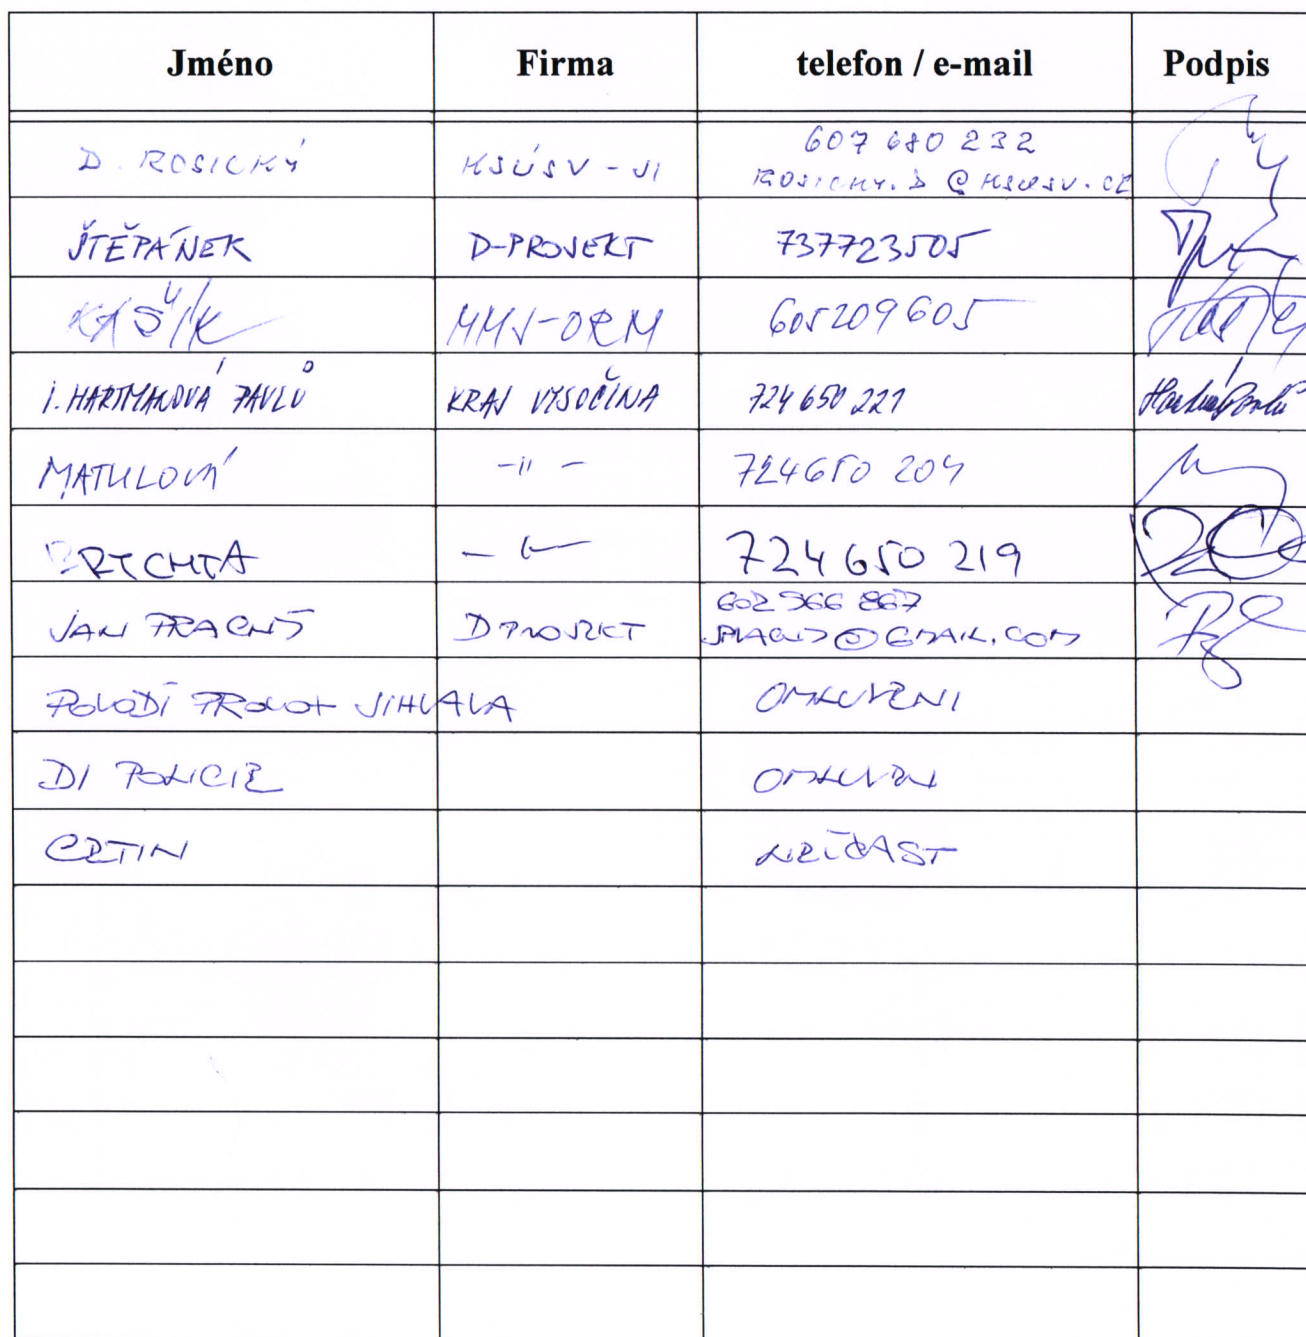 Jméno Firma telefon / e-mail Podpis
D. ROSICKÝ KSÚSV - JI 607 680 232
ROSICKY.D@KSUSV.CZ
ŠTĚPÁNEK D-PROJEKT 737723505
KAŠÍK MMJ-ORM 605209605
I. HARTMANOVÁ PAVLŮ KRAJ VYSOČINA 724 650 221
MATULOVÁ -"- 724650 204
RYCHTA 724 650 219
JAN PRACNÝ D PROJEKT 602 566 867
JPRACNY@GMAIL.COM
POVODÍ JIHLAVA OMLUVENI
DI POLICIE OMLUVEN
CETIN NEÚČAST